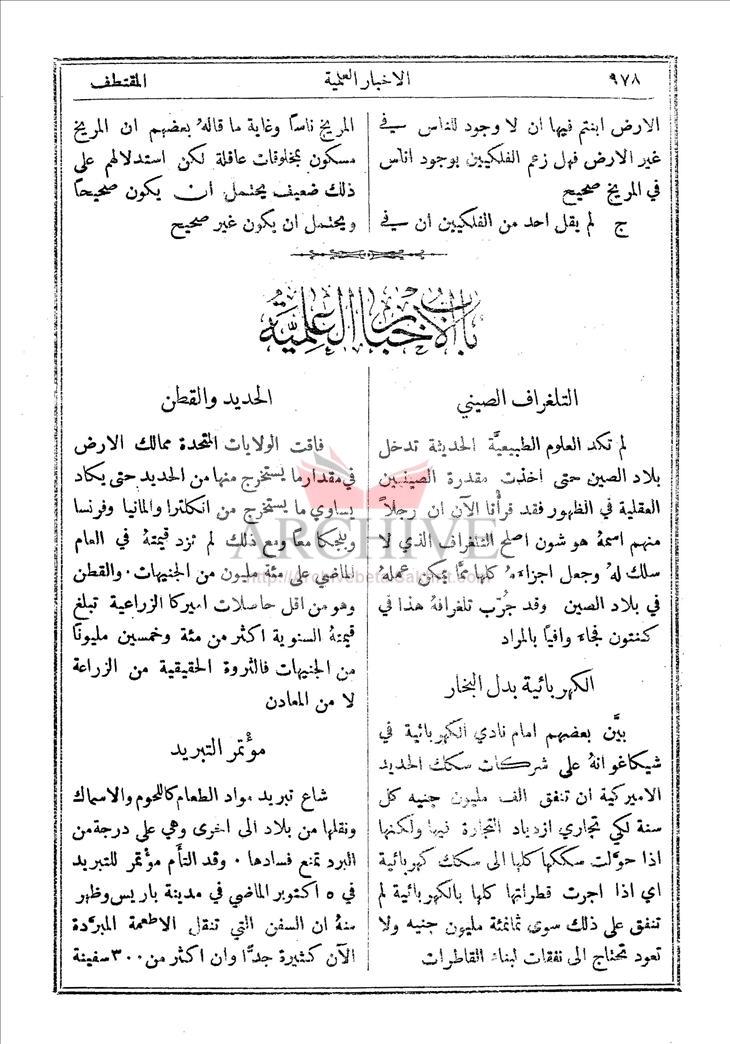 ٩٧٨
الاخبار العلمية
المقتطف
الارض ابنتم فيها ان لا وجود للناس في
غير الارض فهل زعم الفلكيين بوجود اناس
في المريخ صحيح
ج لم يقل احد من الفلكيين ان في
المريخ ناسًا وغاية ما قالهُ بعضهم ان المريخ
مسكون بمخلوقات عاقلة لكن استدلالهم على
ذلك ضعيف يحتمل ان يكون صحيحًا
ويحتمل ان يكون غير صحيح
باب الاخبار العلمية
التلغراف الصيني
لم تكد العلوم الطبيعيَّة الحديثة تدخل
بلاد الصين حتى اخذت مقدرة الصينيين
العقلية في الظهور فقد قرأْنا الآن ان رجلاً
منهم اسمهُ هو شون اصلح التلغراف الذي لا
سلك لهُ وجعل اجزاءهُ كلها ممَّا يمكن عملهُ
في بلاد الصين وقد جُرّب تلغرافهُ هذا في
كنتون فجاء وافيًا بالمراد
الكهربائية بدل البخار
بيَّن بعضهم امام نادي الكهربائية في
شيكاغو انهُ على شركات سكك الحديد
الاميركية ان تنفق الف مليون جنيه كل
سنة لكي تجاري ازدياد التجارة فيها ولكنها
اذا حوَّلت سككها كلها الى سكك كهربائية
اي اذا اجرت قطراتها كلها بالكهربائية لم
تنفق على ذلك سوى ثمانمئة مليون جنيه ولا
تعود تحتاج الى نفقات لبناء القاطرات
الحديد والقطن
فاقت الولايات المتحدة ممالك الارض
في مقدار ما يستخرج منها من الحديد حتى يكاد
يساوي ما يستخرج من انكلترا والمانيا وفرنسا
وبلجكا معًا ومع ذلك لم تزد قيمتهُ في العام
الماضي على مئة مليون من الجنيهات. والقطن
وهو من اقل حاصلات اميركا الزراعية تبلغ
قيمتهُ السنوية اكثر من مئة وخمسين مليونًا
من الجنيهات فالثروة الحقيقية من الزراعة
لا من المعادن
مؤْتمر التبريد
شاع تبريد مواد الطعام كاللحوم والاسماك
ونقلها من بلاد الى اخرى وهي على درجة من
البرد تمنع فسادها . وقد التأَم مؤْتمر للتبريد
في ٥ اكتوبر الماضي في مدينة باريس وظهر
منهُ ان السفن التي تنقل الاطعمة المبرَّدة
الآن كثيرة جدًّا وان اكثر من ٣٠٠ سفينة
ARCHIVE